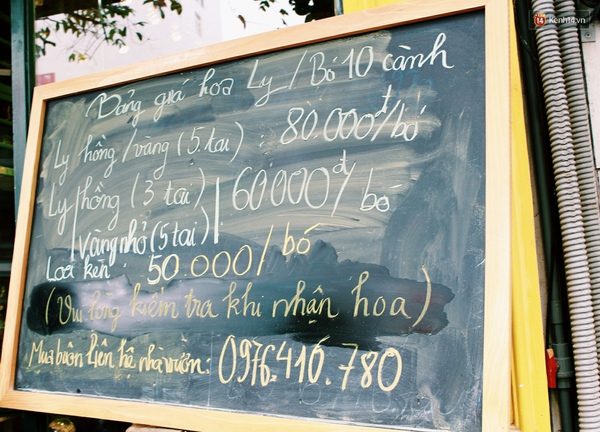 Kenh14.vn
Bảng giá hoa Ly / Bó 10 cành
Ly hồng/vàng (5 tai) : 80.000đ/bó
Ly hồng (3 tai) 60000đ/bó
vàng nhỏ (5 tai)
Loa kèn : 50.000/bó
(Vui lòng kiểm tra khi nhận hoa)
Mua buôn liên hệ nhà vườn: 0976.416.780